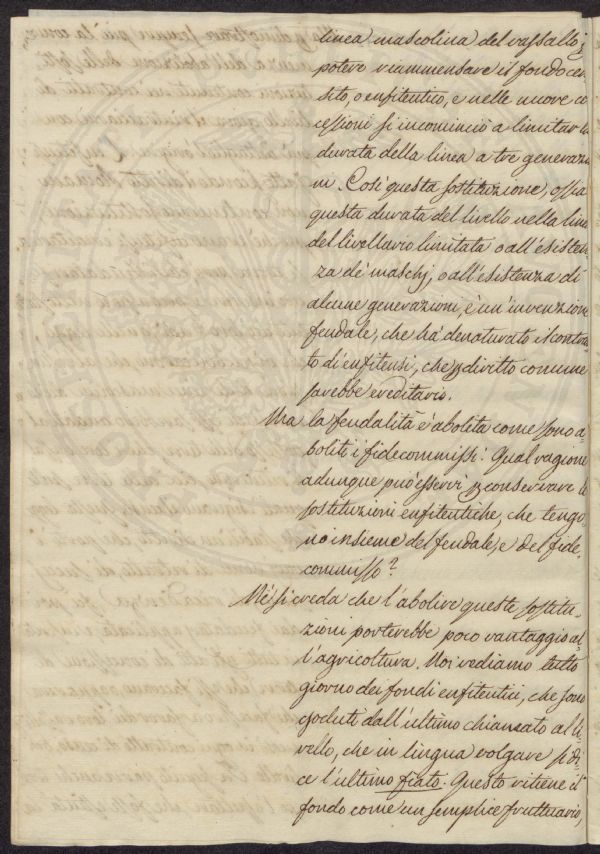 linea mascolina del vassallo, p
potere riammensare il fondo cen-
sito, o enfiteutico, e nelle nuove co
cessioni si incominciò a limitar la
durata della linea a tre generazio
ni. Così questa sostituzione, ossia
questa durata del livello nella line
del livellario limitata o all'esisten
za de' maschj, o all'esistenza di
alcune generazioni, è un'invenzione
feudale, che ha denaturato il contra
to di enfiteusi, che p diritto comune
sarebbe ereditario.
Ma la feudalità è abolita come sono a
boliti i fidecommissi: Qual ragione
adunque può esservi p conservare le
sostituzioni enfiteutiche, che tengo
no insieme del feudale, e del fide,
commisso?
Nè si creda che l'abolire queste sostitu-
zioni porterebbe poco vantaggio al-
l'agricoltura. Noi vediamo tutto
giorno dei fondi enfiteutici, che sono
goduti dall'ultimo chiamato al li-
vello, che in lingua volgare si di-
ce l'ultimo fiato. Questo ritiene il
fondo come un semplice fruttuario,